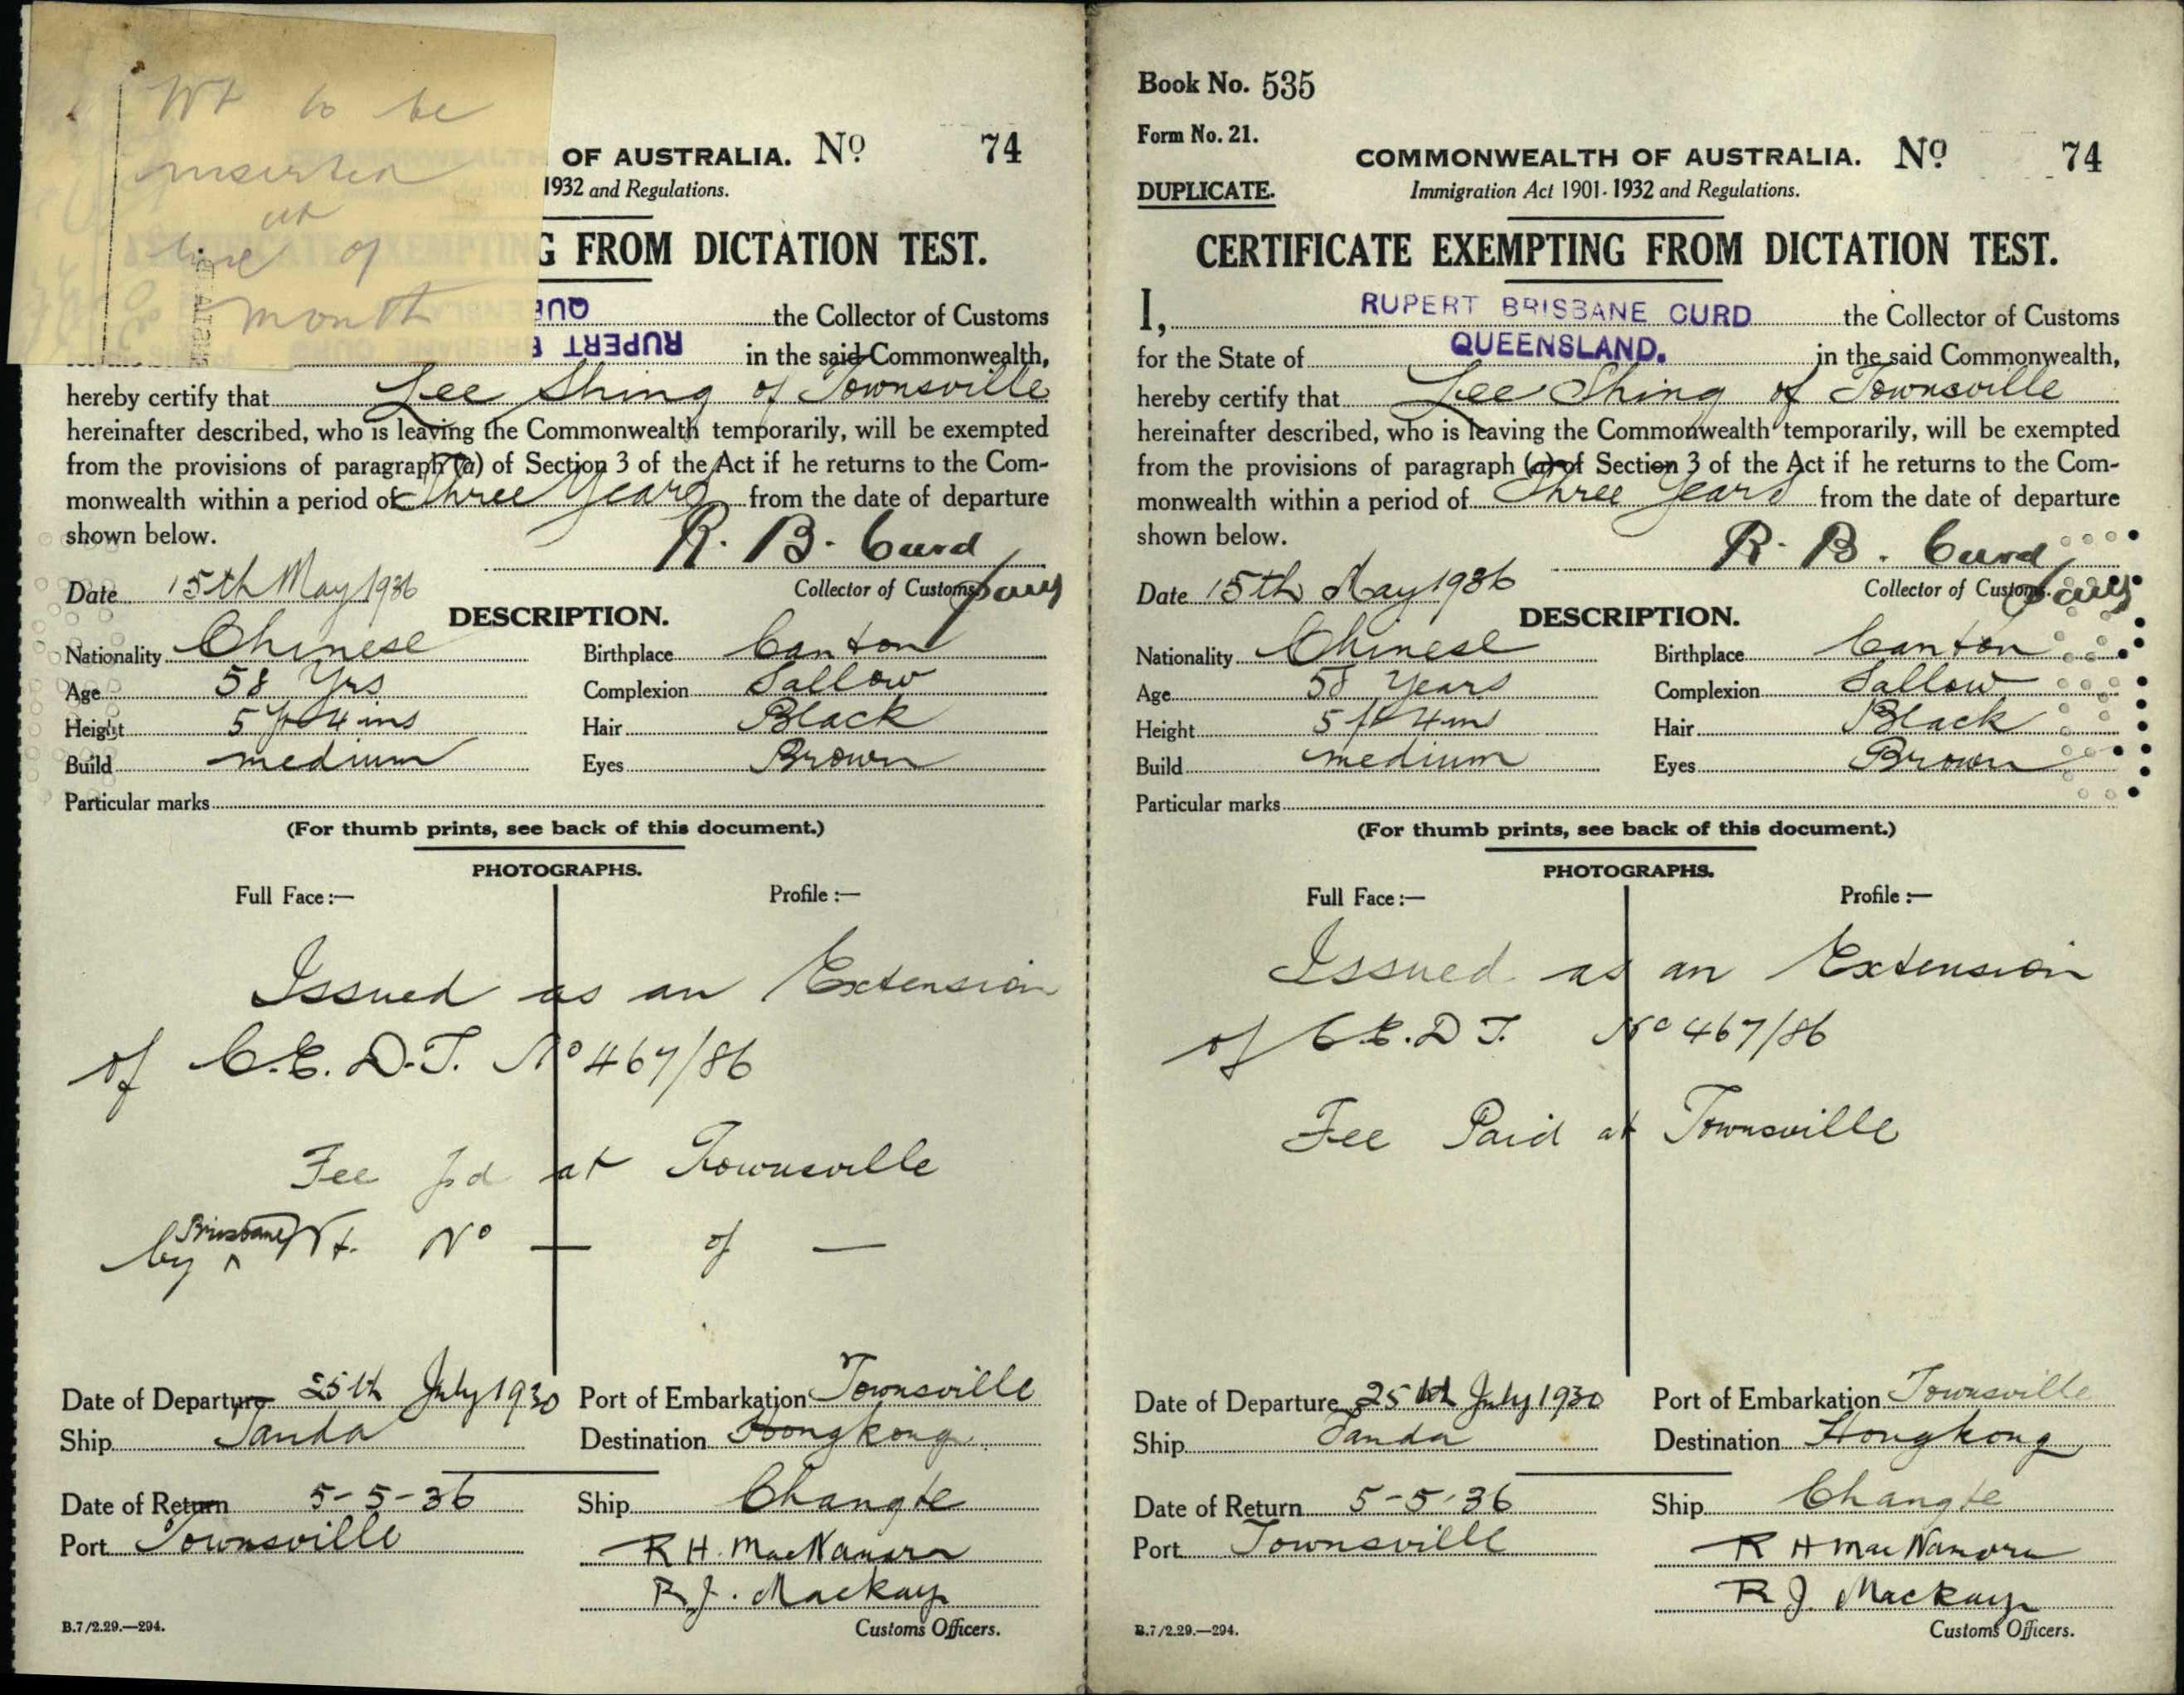 Wt to be
inserted
at
time of
month
OF AUSTRALIA. No 74
1932 and Regulations.
G FROM DICTATION TEST.
QUE
the Collector of Customs
RUPERT B
in the said Commonwealth,
hereby certify that Lee Shing of Townsville
hereinafter described, who is leaving the Commonwealth temporarily, will be exempted
from the provisions of paragraph (a) of Section 3 of the Act if he returns to the Com-
monwealth within a period of Three Years from the date of departure
shown below.
R. B. Curd
Date 15th May 1936
Collector of Customs
DESCRIPTION.
Nationality Chinese Birthplace Canton
Age 58 Yrs Complexion Sallow
Height 5 ft 4 ins Hair Black
Build medium Eyes Brown
Particular marks
(For thumb prints, see back of this document.)
PHOTOGRAPHS.
Full Face:— Profile:—
Issued as an Extension
of C.E.D.T. No 467/86
Fee pd at Townsville
by Brisbane Wt. No — of —
Date of Departure 25th July 1930 Port of Embarkation Townsville
Ship Tanda Destination Hongkong
Date of Return 5-5-36 Ship Changte
Port Townsville R H. MacNamara
R.J. Mackay
B.7/2.29.—294. Customs Officers.
Book No. 535
Form No. 21.
COMMONWEALTH OF AUSTRALIA. No 74
DUPLICATE.
Immigration Act 1901-1932 and Regulations.
CERTIFICATE EXEMPTING FROM DICTATION TEST.
I, RUPERT BRISBANE CURD the Collector of Customs
for the State of QUEENSLAND. in the said Commonwealth,
hereby certify that Lee Shing of Townsville
hereinafter described, who is leaving the Commonwealth temporarily, will be exempted
from the provisions of paragraph (a) of Section 3 of the Act if he returns to the Com-
monwealth within a period of Three Years from the date of departure
shown below.
R. B. Curd
Date 15th May 1936
Collector of Customs.
DESCRIPTION.
Nationality Chinese Birthplace Canton
Age 58 Years Complexion Sallow
Height 5 ft 4 ins Hair Black
Build medium Eyes Brown
Particular marks
(For thumb prints, see back of this document.)
PHOTOGRAPHS.
Full Face:— Profile:—
Issued as an Extension
of C.E.D.T. No 467/86
Fee Paid at Townsville
Date of Departure 25th July 1930 Port of Embarkation Townsville
Ship Tanda Destination Hongkong
Date of Return 5-5-36 Ship Changte
Port Townsville R H MacNamara
R J Mackay
B.7/2.29.—294. Customs Officers.